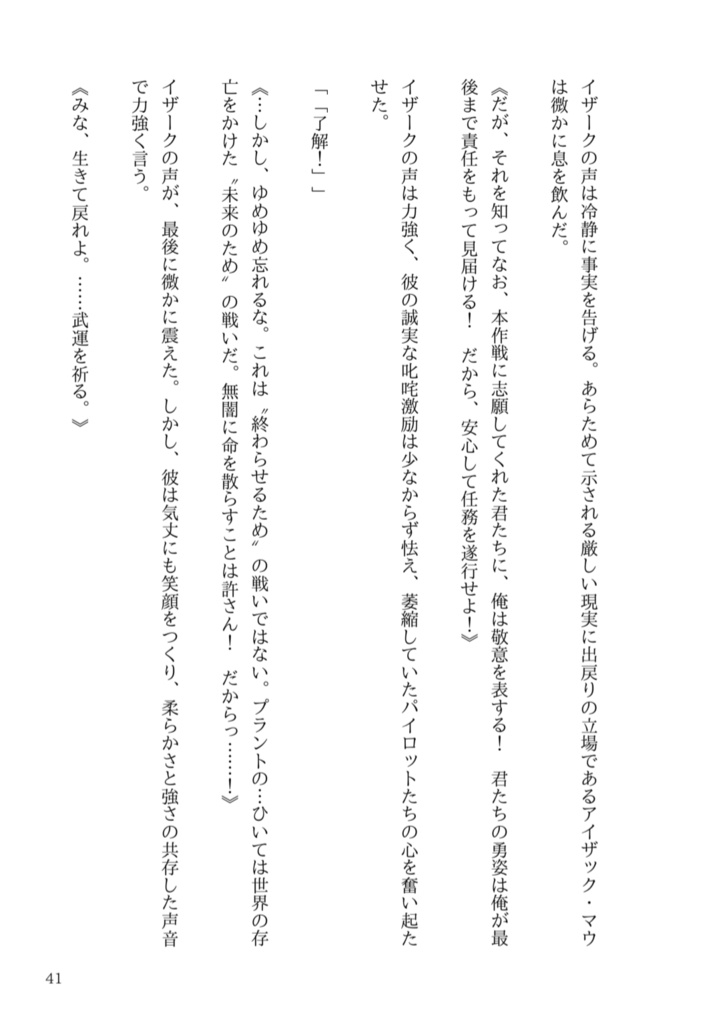 イザークの声は冷静に事実を告げる。あらためて示される厳しい現実に出戻りの立場であるアイザック・マウ
は微かに息を飲んだ。
《だが、それを知ってなお、本作戦に志願してくれた君たちに、俺は敬意を表する！　君たちの勇姿は俺が最
後まで責任をもって見届ける！　だから、安心して任務を遂行せよ！》
イザークの声は力強く、彼の誠実な叱咤激励は少なからず怯え、萎縮していたパイロットたちの心を奮い起た
せた。
「「了解！」」
《…しかし、ゆめゆめ忘れるな。これは〝終わらせるため〟の戦いではない。プラントの…ひいては世界の存
亡をかけた〝未来のため〟の戦いだ。無闇に命を散らすことは許さん！　だからっ……！》
イザークの声が、最後に微かに震えた。しかし、彼は気丈にも笑顔をつくり、柔らかさと強さの共存した声音
で力強く言う。
《みな、生きて戻れよ。……武運を祈る。》
41